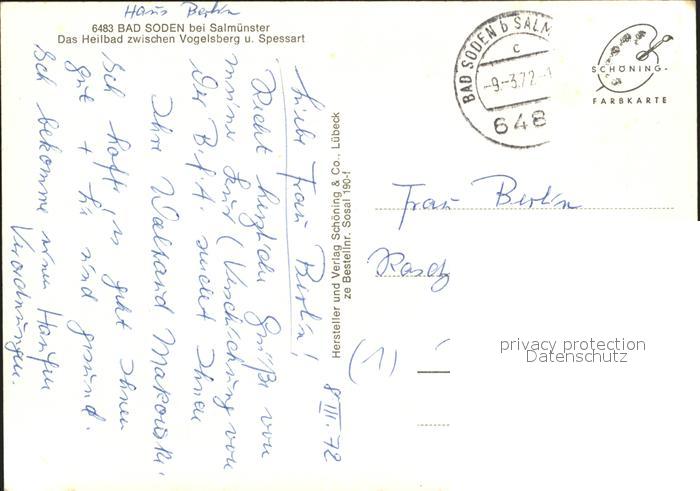 Haus Berlin
6483 BAD SODEN bei Salmünster
Das Heilbad zwischen Vogelsberg u. Spessart
8 III. 72
Liebe Frau Berlin!
Recht herzliche Grüße von
meiner Kur (Verschickung von
der B.f.A. sendet Ihnen
Ihre Waltraud Makowski.
Ich hoffe, es geht Ihnen
gut + Sie sind gesund.
Ich bekomme einen Haufen
Verordnungen.
Hersteller und Verlag Schöning & Co., Lübeck
ze Bestellnr. Sosal 190-f
BAD SODEN b SALM
c
-9.-3.72-1
648
SCHÖNING-
FARBKARTE
Frau Berlin
(1)
privacy protection
Datenschutz